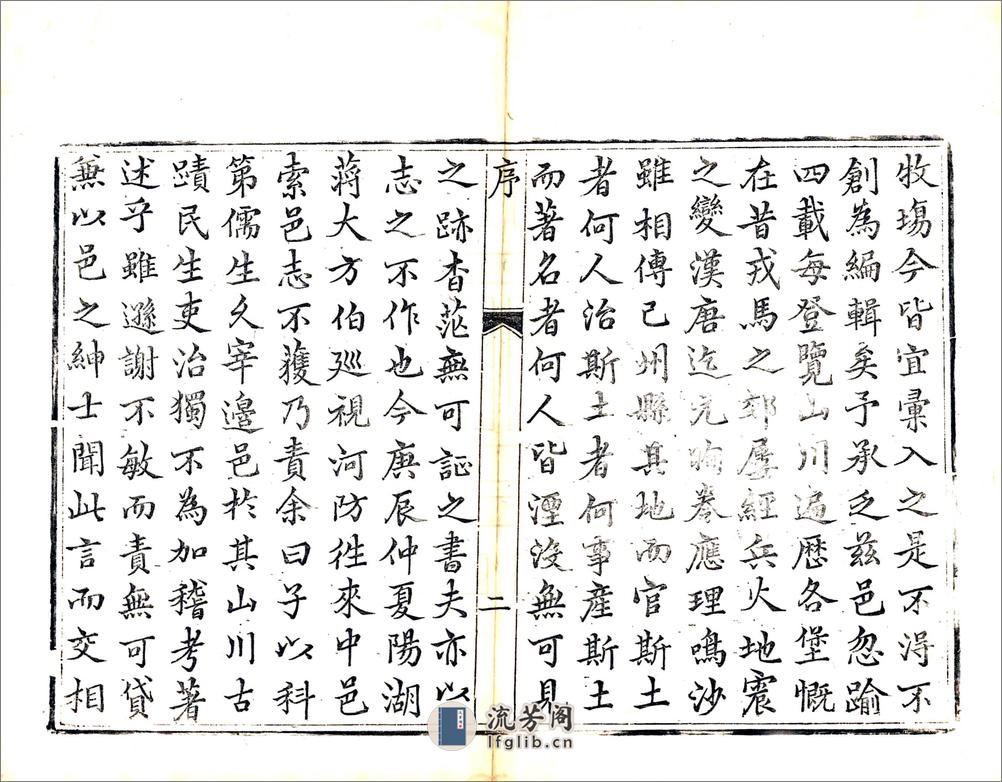 牧塲今皆宜彚入之是不淂不
創為編輯矣予承乏兹邑忽踰
四載每登覽山川遍歷各堡慨
在昔戎馬之郊屢經兵火地震
之變漢唐迄元
應理鳴沙
雖相傳已州縣其地而官斯土
者何人治斯土者何事產斯土
而著名者何人皆湮沒無可見
序
二
之跡杳茫無可証之書夫亦以
志之不作也今庚辰仲夏陽湖
蔣大方伯廵視河防徃來中邑
索邑志不獲乃責余曰子以科
第儒生久宰邊邑於其山川古
蹟民生吏治獨不為加稽考著
述乎雖遜謝不敏而責無可貸
無以邑之紳士聞此言而交相
流芳阁
lfglib.cn